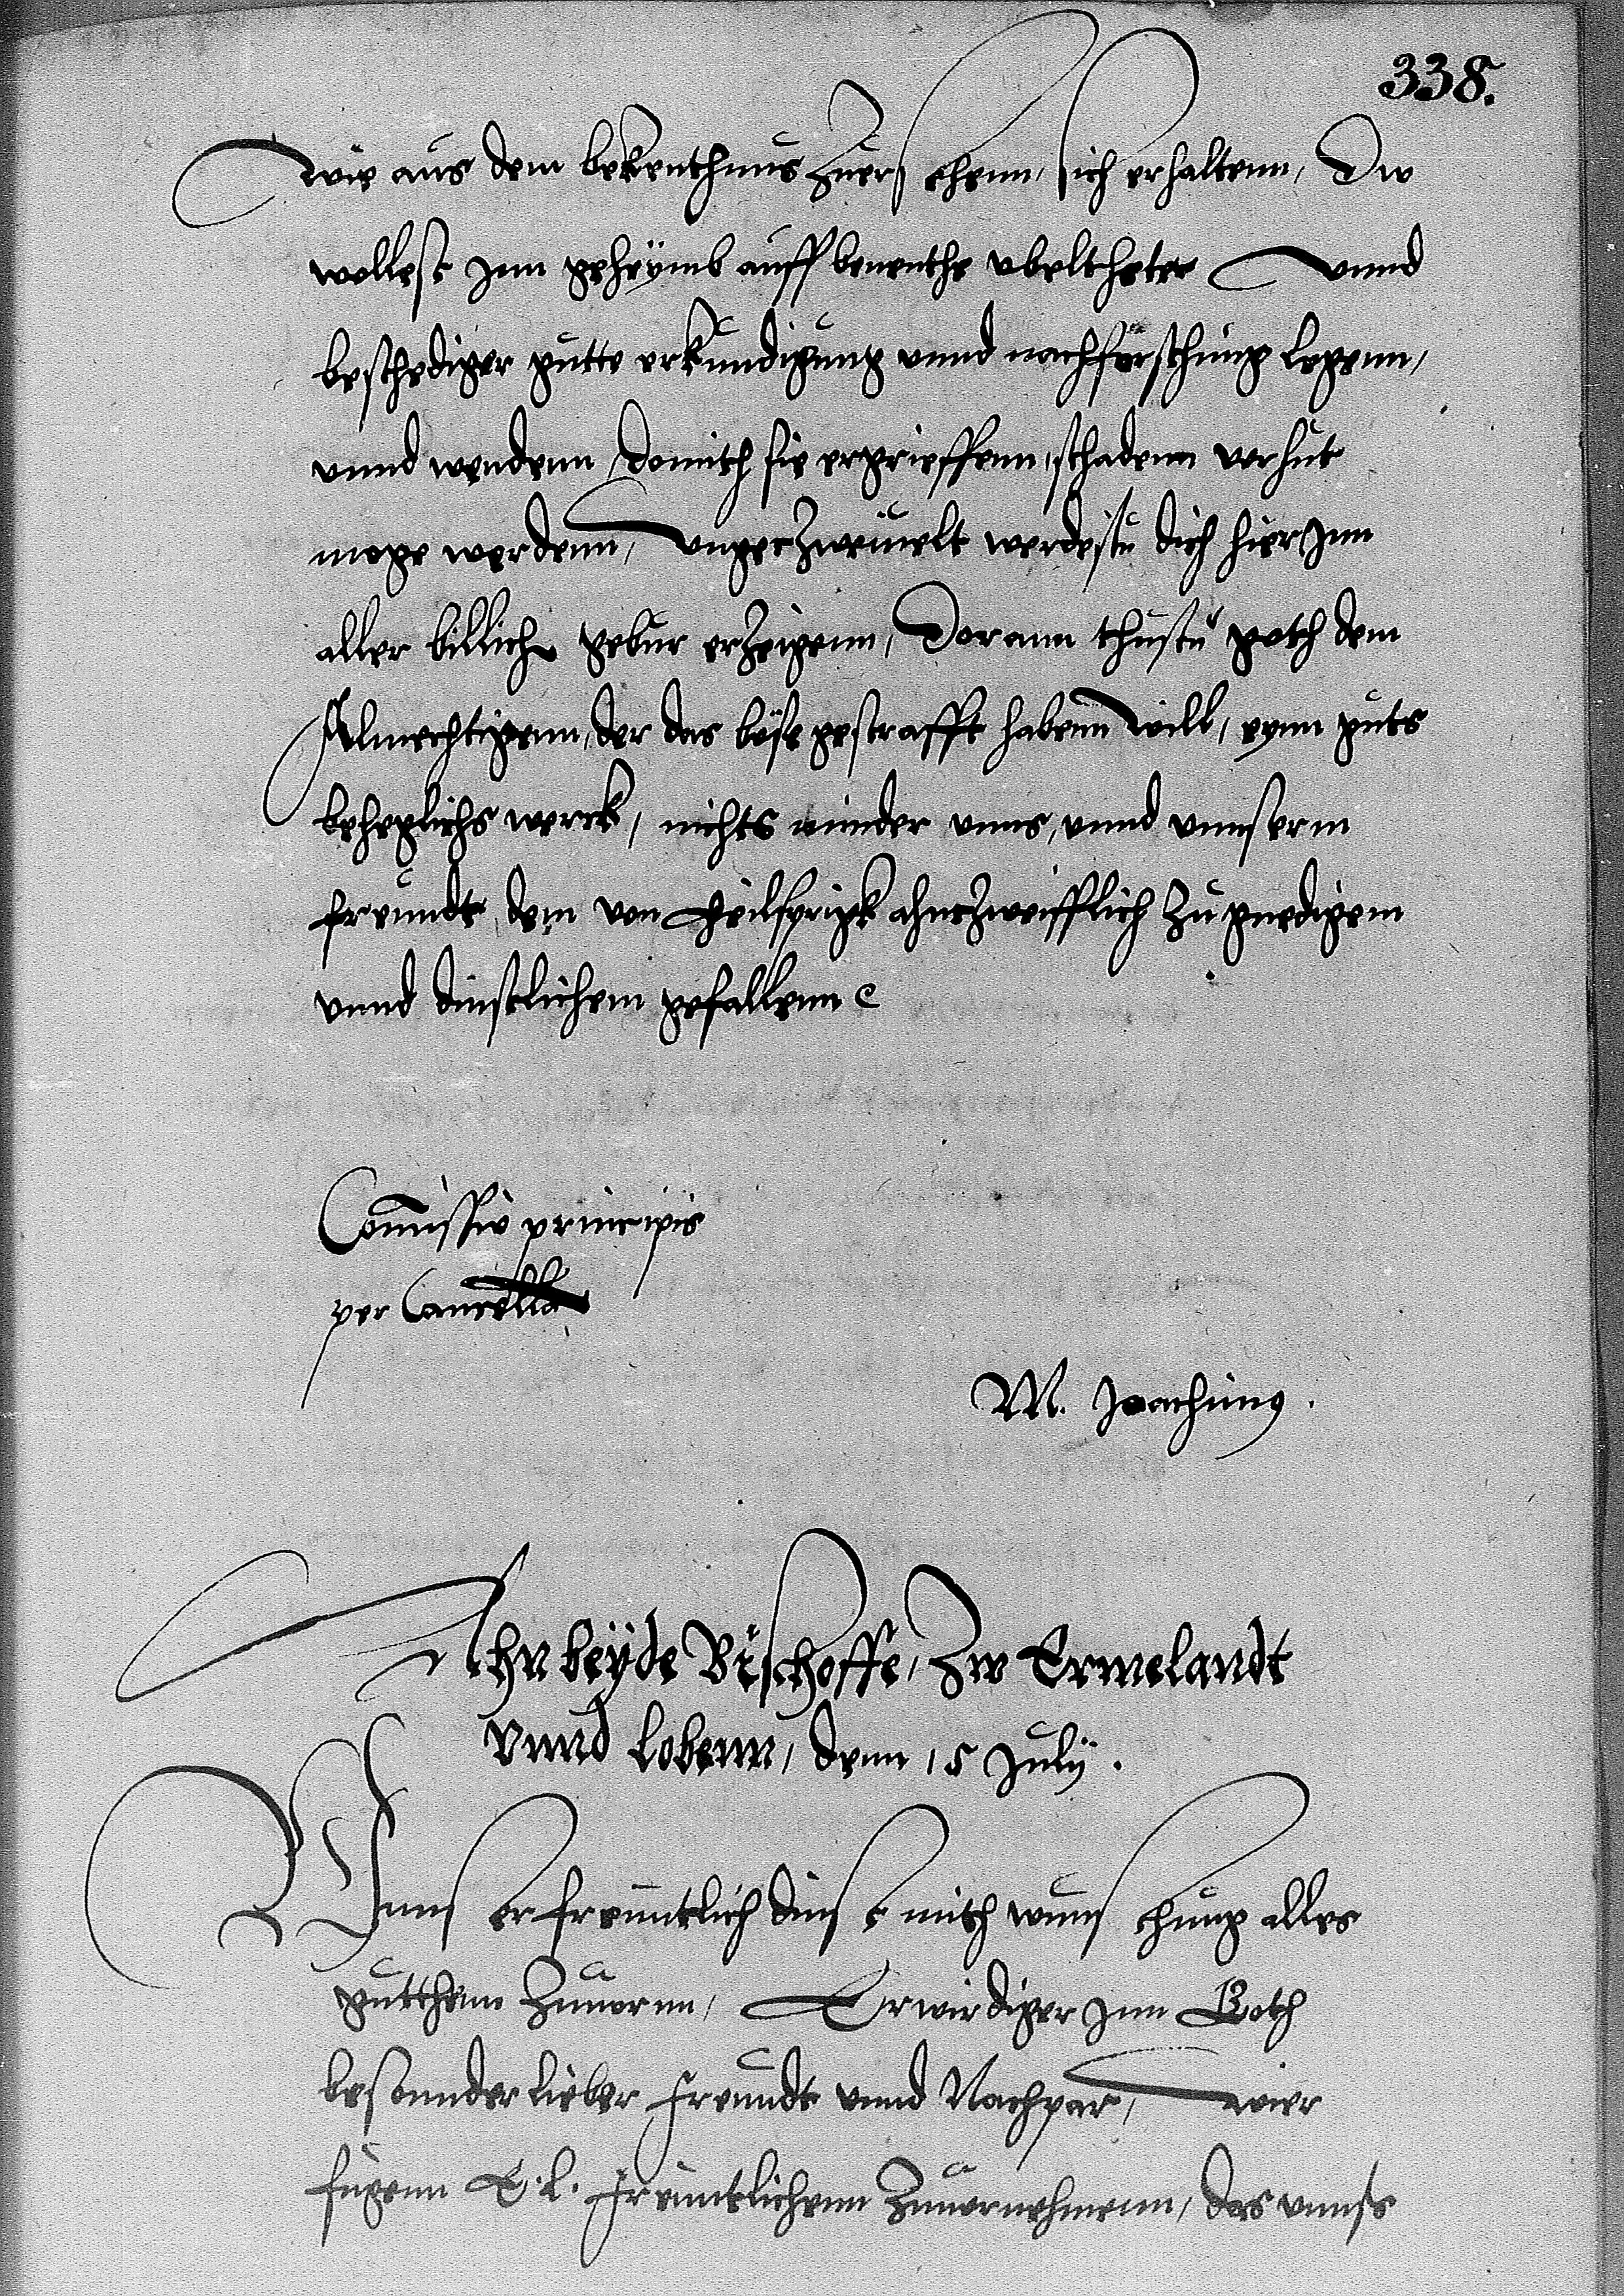 338.
wie aus dem bekenthnus zuersehenn, sich erhaltenn, Dw
wollest jnn geheymb auff benenthe vbeltheter vnnd
beschediger gutte erkundigung vnnd nachforschung legenn,
vnnd wendenn, domith sie ergrieffenn, schadenn verhut
moge werdenn, vngeczweiuelt werdestu dich hierjnn
aller billichen gebur erzeigenn, Dorann thustu goth dem
Almechtigenn, der das böse gestrafft habenn will, eynn guts
beheglichs werck, nichts minder vnns, vnnd vnnserm
freundt, dem von Heilsprigk ahnczweifflich zu gnedigem
vnnd dinstlichem gefallenn
Commissio principis
per Cancella
M. Joachimus.
Ahn beyde Bischoffe, zw Ermelandt
vnnd Lobenn, denn 15 July.
Vnnser freuntlich dinst mith wunschung alles
gutthenn zuuornn, Erwirdiger jnn Goth
besonnder lieber freundt vnnd Nachpar, wier
fugenn E. L. freuntlichenn zuuornehmenn, das vnnss